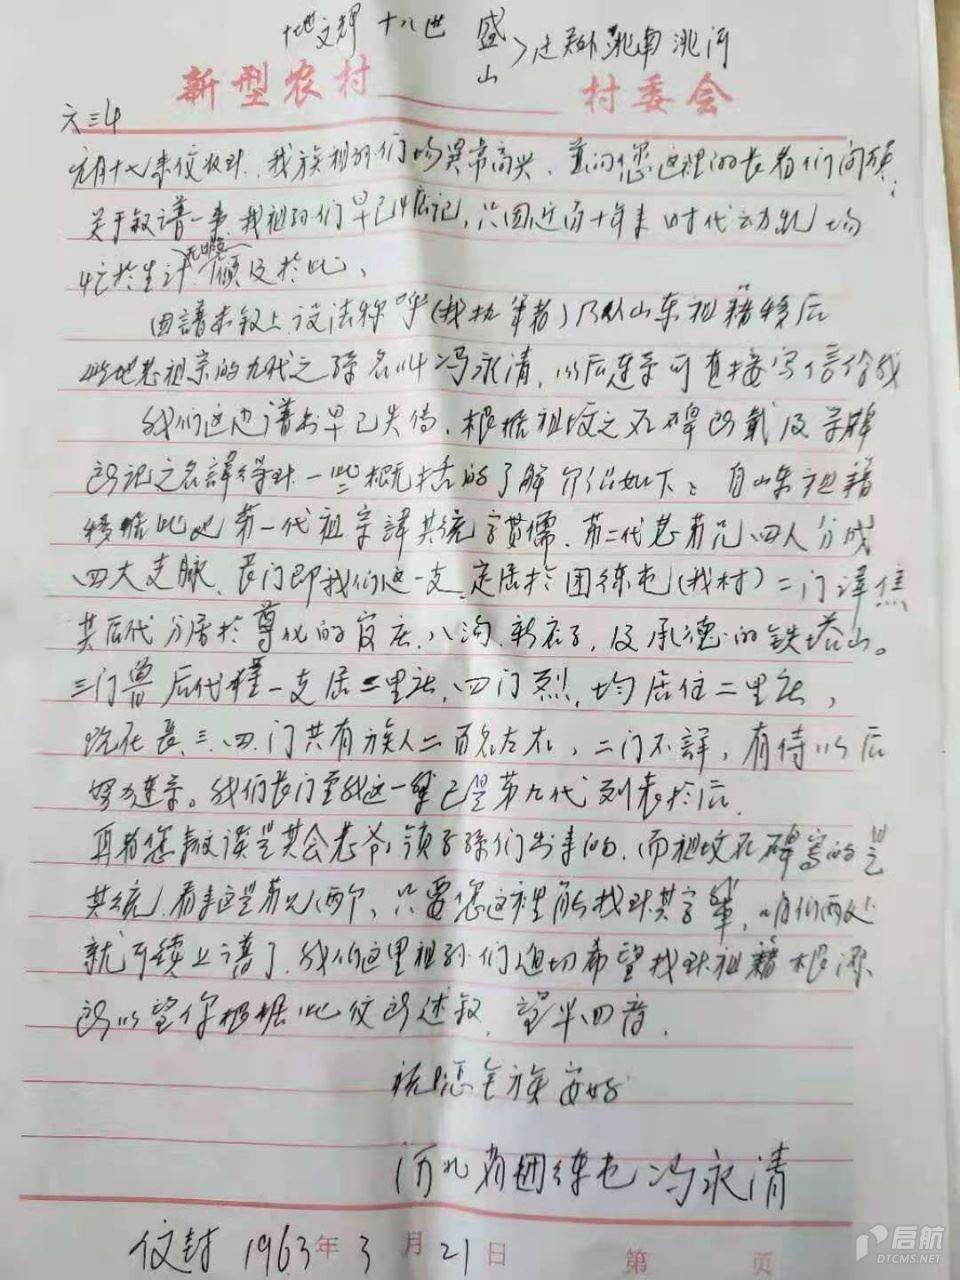 十七世文輝 十八世 盛山 迁关外洮南洮河
新型农村 村委会
六三4
元月十七来信收到、我族祖孙们均異常高兴、並向您这里的长者们问候;
关于叙谱一事、我祖孙们早已惦记,只因近百十年来时代动乱均
忙於生计無暇顾及於此、
由譜未叙上、设法称呼(我执筆者)乃从山东祖籍移后
此地老祖宗的九代之孫名叫冯永清,以后连系可直接写信给我
我们这边谱书早已失传、根据祖坟之石碑所載及
所记之名諱得到一些概括的了解介绍如下: 自山东祖籍
移居此地第一代祖宗諱其統字貫儒、第二代老弟兄四人分成
四大支脉、長门即我们这一支、定居於团练屯(我村)二门諱焦
其后代分居於尊化的官庄、八沟、新店子,及承德的铁塔山。
三门魯后代僅一支居二里社、四门烈,均居住二里社,
现在長、三、四、门共有族人二百名左右,二门不詳,有待以后
努力连系。我们长门至我这一辈已是第九代列表於后.
再者您叙谈是其会老爷領子孫们出来的、而祖坟石碑寫的是
其統、看来这是弟兄两个、只要您这裡能找到其字輩,咱们两处
就可续上谱了、我们这里祖孙们迫切希望找到祖籍根源
所以望你根据此信所述叙,望早回音.
祝您全族安好
河北省团练屯冯永清
信封 1963年3月21日 第 页
启航
DTCMS.NET